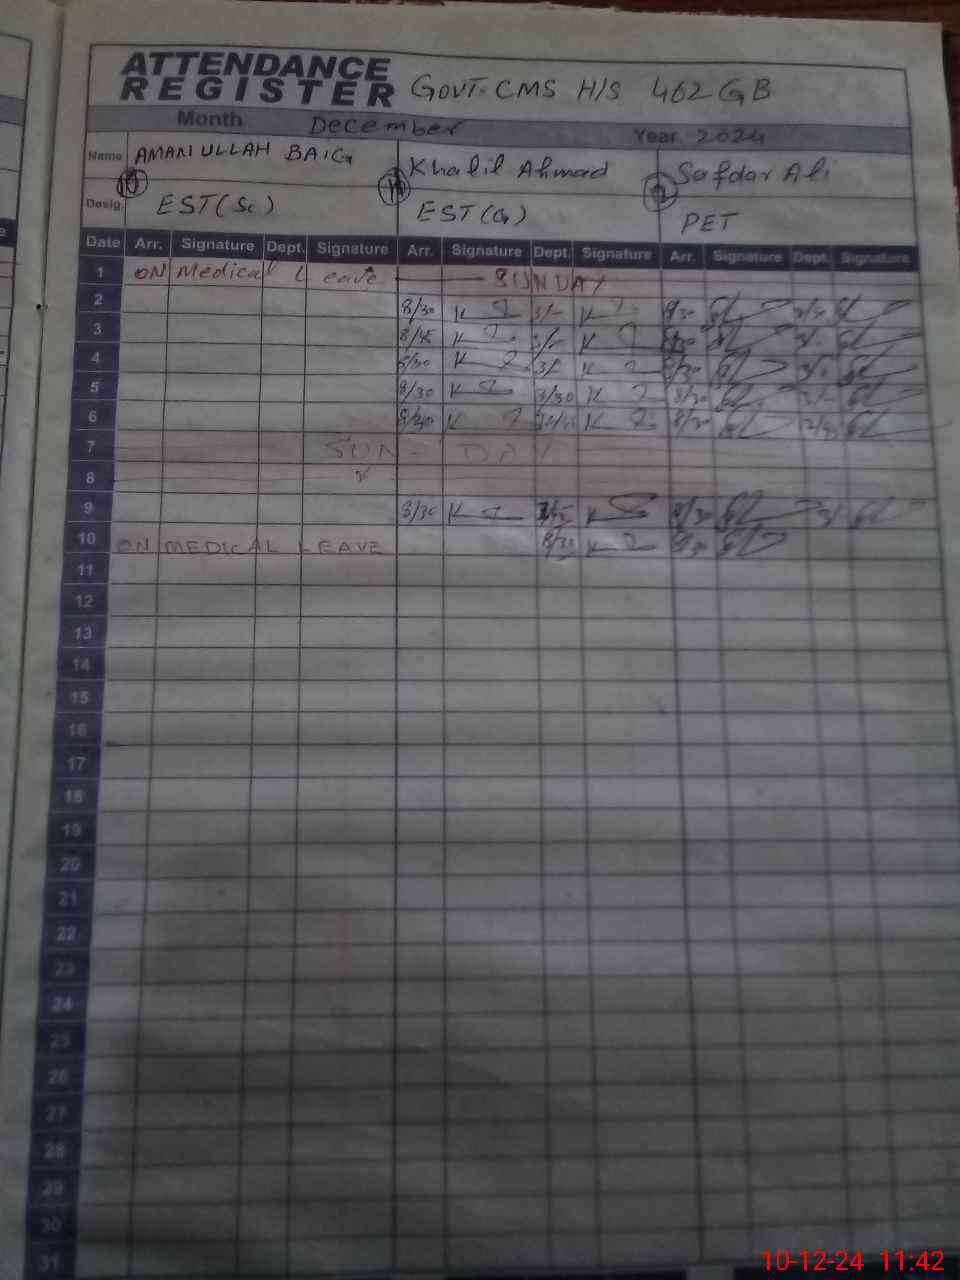 ATTENDANCE
REGISTER GOVT-CMS H/S 462 GB
Month December Year 2024
Name AMANULLAH BAIG Khalil Ahmad Safdar Ali
Desig. EST(Sc) EST(G) PET
Date Arr. Signature Dept. Signature Arr. Signature Dept. Signature Arr. Signature Dept. Signature
1 ON Medical Leave SUNDAY
2 8/30 K 3/- K 8/30
3 8/45 K 3/- K 8/30
4 8/30 K 3/- K 8/30 3/-
5 8/30 K 3/30 K 8/30 3/-
6 K K 8/30
7 SUN-DAY
8
9 8/30 K K 8/30
10 ON MEDICAL LEAVE 8/30 K 8/30
11
12
13
14
15
16
17
18
19
20
21
22
23
24
25
26
27
28
29
30
31
10-12-24 11:42